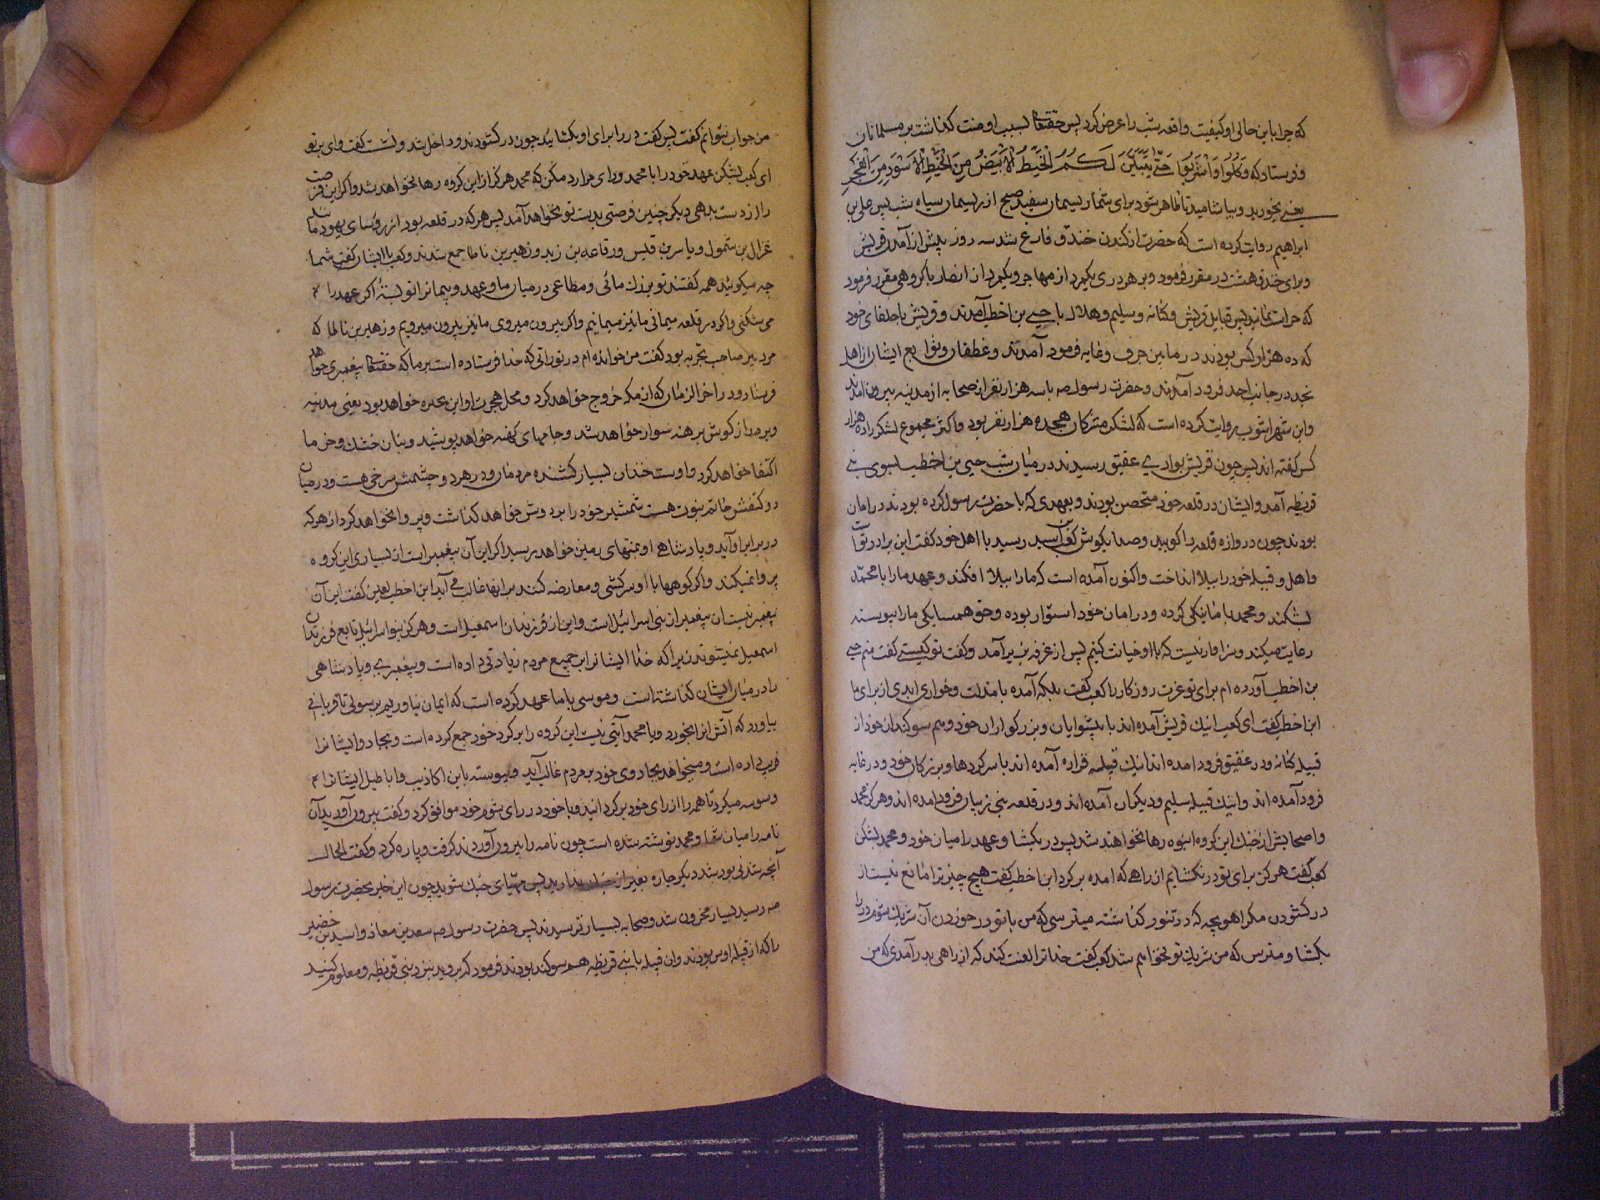 که چرا باین حالی او کیفیت واقعه شب را عرض کرد پس حقتعالی بسبب او منت گذاشت بر مسلمانان
و فرستاد که وَکُلُوا وَاشْرَبُوا حَتّٰی یَتَبَیَّنَ لَکُمُ الْخَیْطُ الْاَبْیَضُ مِنَ الْخَیْطِ الْاَسْوَدِ مِنَ الْفَجْرِ
یعنی بخورید و بیاشامید تا ظاهر شود برای شما ریسمان سفید صبح از ریسمان سیاه شب پس علی بن
ابراهیم روایت کرده است که حضرت از کندن خندق فارغ شد سه روز پیش از آمدن قریش
و برای خندق هشت در مقرر فرمود و بر هر دری یکمرد از مهاجر و یکمرد از انصار با گروهی مقرر فرمود
که حراست نمایند پس قبایل قریش و کنانه و سلیم و هلال با حیی بن اخطب آمدند و قریش با حلفای خود
که ده هزار کس بودند در مابین جرف و غابه فرود آمدند و غطفان و توابع ایشان از اهل
نجد در جانب احد فرود آمدند و حضرت رسول صه با سه هزار نفر از صحابه از مدینه بیرون آمدند
و ابن شهراشوب روایت کرده است که لشکر مشرکان هجده هزار نفر بود و اکثر مجموع لشکر را ده هزار
کس گفته اند پس چون قریش بوادی عقیق رسیدند در میان شب حیی بن اخطب بسوی بنی
قریظه آمد و ایشان در قلعه خود متحصن بودند و بعهدی که با حضرت رسول کرده بودند در امان
بودند چون دروازه قلعه را کوبید و صدا بگوش کعب اسید رسید با اهل خود گفت این برادر توآت
و اهل و قبیله خود را ببلا انداخت و اکنون آمده است که ما را ببلا افکند و عهد ما را با محمد
بشکند و محمد با ما نیکی کرده و در امان خود استوار بوده و حق همسایگی ما را پیوسته
رعایت میکند و سزاوار نیست که با او خیانت کنیم پس از غرفه بزیر آمد و گفت تو کیستی گفت منم حیی
بن اخطب آورده ام برای تو عزت روزگار را کعب گفت بلکه آمده با مذلت و خواری ابدی از برای ما
ابن اخطب گفت ای کعب اینک قریش آمده اند با پیشوایان و بزرگواران خود و هم سوگندان خود از
قبیله کنانه و در عقیق فرود آمده اند اینک قبیله فزاره آمده اند با سرکردها و بزرگان خود و در غابه
فرود آمده اند و اینک قبیله سلیم و دیگران آمده اند و در قلعه بنی زبیان فرود آمده اند و هرگز محمد
و اصحابش از چنگ این گروه انبوه رها نخواهند شد پس در بگشا و عهد را میان خود و محمد بشکن
کعب گفت هرگز برای تو در نگشایم از راهی که آمده برگرد ابن اخطب گفت هیچ چیز ترا مانع نیست از
در گشودن مگر اهو بچه که در تنور گذاشته میترسی که من با تو در خوردن آن شریک شوم در را
بگشا و مترس که من شریک تو نخواهم شد کعب گفت خدا ترا لعنت کند که از راهی بدر آمدی که من
من جواب نتوانم گفت پس گفت در را برای او بگشایید چون در گشودند و داخل شد و نشست گفت وای بر تو
ای کعب بشکن عهد خود را با محمد و رای مرا رد مکن که محمد هرگز از این گروه رها نخواهد شد و اگر این فرصت
را از دست بدهی دیگر چنین فرصتی بدست تو نخواهد آمد پس هر که در قلعه بود از رؤسای یهود مانند
غزال بن شمول و یاسر بن قیس و رفاعه بن زید و زهیر بن ناطا جمع شدند و کعب با ایشان گفت شما
چه میگوئید همه گفتند تو بزرگ مائی و مطاعی در میان ما و عهد و پیمانرا تو بستهٔ اگر عهد را
می شکنی و اگر در قلعه میمانی ما نیز میمانیم و اگر بیرون میروی ما نیز بیرون میرویم و زهیر بن ناطا که
مرد پیر صاحب تجربه بود گفت من خوانده ام در توراتی که خدا فرستاده است بر ما که حقتعالی پیغمبری خواهد
فرستاد در آخر الزمان که از مکه خروج خواهد کرد و محل هجرت او این بحیره خواهد بود یعنی مدینه
و بر دراز گوش برهنه سوار خواهد شد و جامهای کهنه خواهد پوشید و بنان خشک و خرما
اکتفا خواهد کرد و اوست خندان بسیار کشنده مردمان و در هر دو چشمش سرخی هست و در میان
دو کتفش خاتم نبوت هست شمشیر خود را بر دوش خواهد گذاشت و پروا نخواهد کرد از هر که
در برابر او آید و پادشاهی او بمنتهای زمین خواهد رسید اگر این آن پیغمبر است از بسیاری این گروه
پروا نمیکند و اگر کوهها با او سرکشی و معارضه کنند بر انها غالب می آید ابن اخطب لعین گفت این آن
پیغمبر نیست آن پیغمبر از بنی اسرائیل است و این از فرزندان اسمعیل است و هرگز بنو اسرائیل تابع فرزندان
اسمعیل نمیشوند زیرا که خدا ایشانرا بر جمیع مردم زیادتی داده است و پیغمبری و پادشاهی
را در میان ایشان گذاشته است و موسی با ما عهد کرده است که ایمان نیاوریم برسولی تا قربانی
بیاورد که آتش انرا بخورد و با محمد آیتی نیست این گروه را بر گرد خود جمع کرده است و بجادو ایشانرا
فریب داده است و میخواهد بجادوی خود بر مردم غالب آید و پیوسته باین اکاذیب و اباطیل ایشانرا
وسوسه میکرد تا همه را از رای خود برگردانید و با خود در رای شوم خود موافق کرد و گفت بیرون آورید آن
نامه را میان شما و محمد نوشته شده است چون نامه را بیرون آوردند گرفت و پاره کرد و گفت الحال
آنچه شدنی بود شد دیگر چاره بغیر از جنک ندارید پس مهیای جنک شوید چون این خبر بحضرت رسول
صه رسید بسیار محزون شد و صحابه بسیار ترسیدند پس حضرت رسول صه سعد بن معاذ و اسید بن حضیر
را که از قبیله اوس بودند و ان قبیله با بنی قریظه هم سوگند بودند فرمود که بروید بنزد بنی قریظه و معلوم کنید